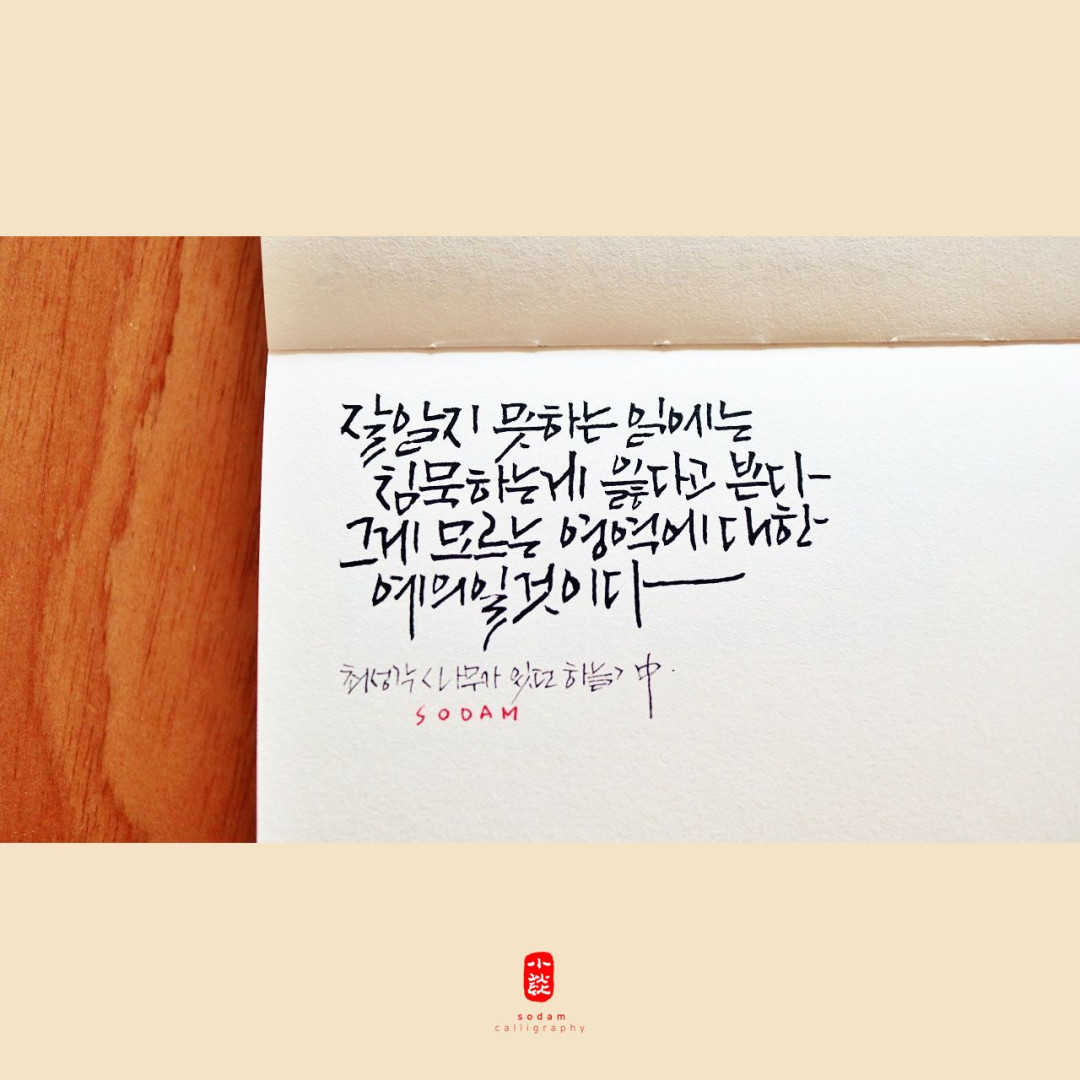 잘 알지 못하는 일에는
침묵하는게 옳다고 본다
그게 모르는 영역에 대한
예의일 것이다
최성각 <나무가 있던 하늘> 中.
SODAM
小談
sodam
calligraphy